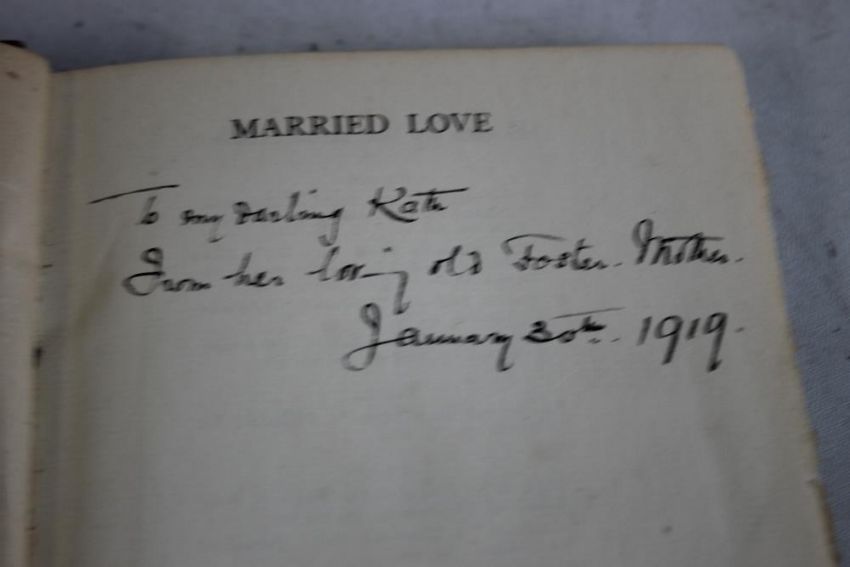 MARRIED LOVE
To my darling Kath
From her loving old Foster-Mother.
January 30th. 1919.